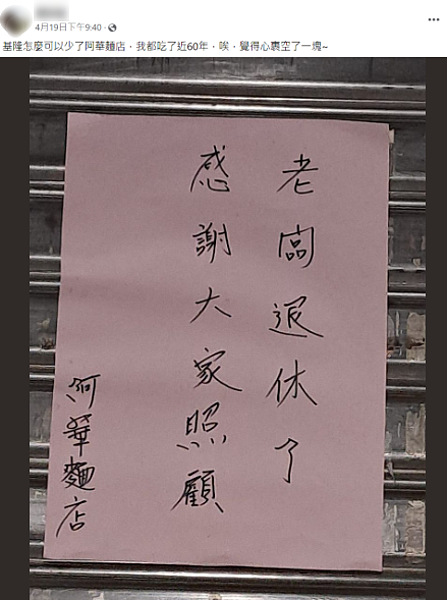 4月19日下午9:40
基隆怎麼可以少了阿華麵店，我都吃了近60年，唉，覺得心裏空了一塊~
老闆退休了
感謝大家照顧
阿華麵店